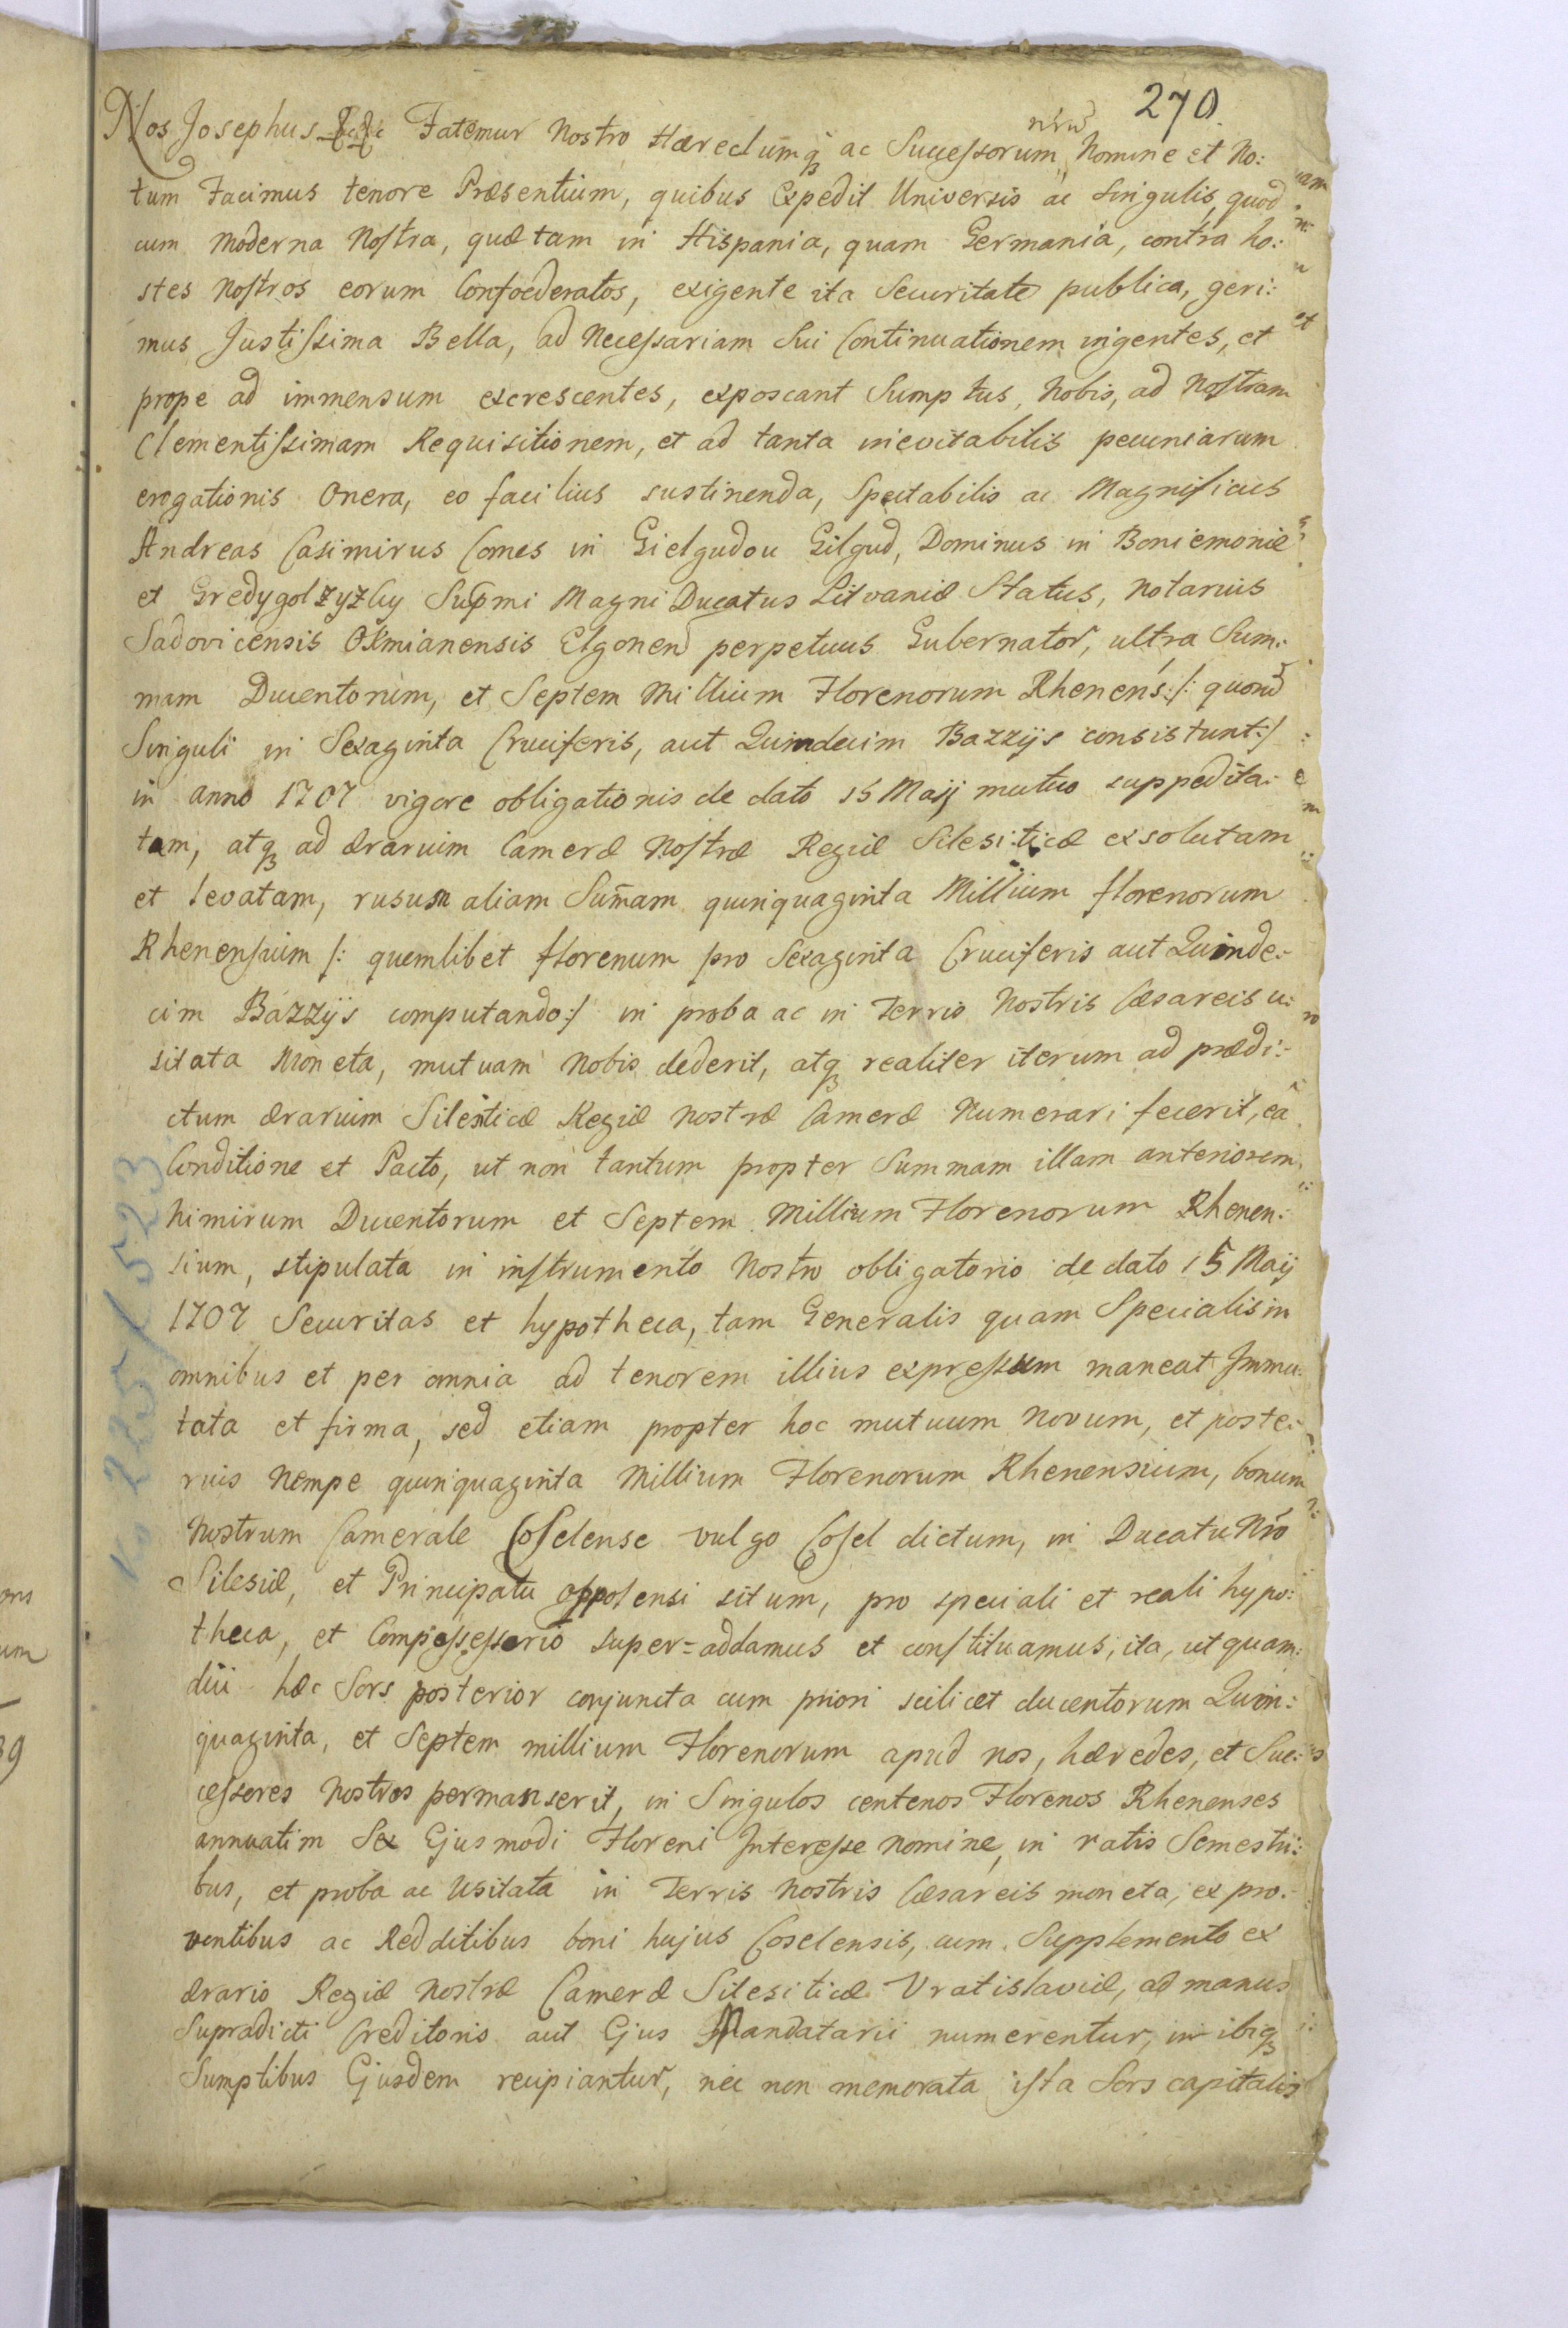 270.
Nos Josephus Fatemur Nostro Hæredumq ac Successorum nrω̄ Nomine et No:
tum Facimus tenore Præsentium, quibus Expedit Universis ac Singulis, quod
cum Moderna Nostra, quæ tam in Hispania, quam Germania, contra ho:
stes Nostros eorum Confoederatos, exigente ita Securitate publica, geri:
mus Justissima Bella, ad Necessariam Sui Continuationem ingentes, et
prope ad immensum excrescentes, exposcant Sumptus, Nobis, ad Nostram
Clementissimam Requisitionem, et ad tanta inevitabilis pecuniarum
erogationis Onera, eo facilius sustinenda, Spectabilis ac Magnificus
Andreas Casimirus Comes in Gielgudou Gilgud, Dominus in Boniemonie
et Gredygolzyzky Supmi Magni Ducatus Litvaniæ Status, Notarius
Sadovicensis Oxmianensis Elgonend perpetuus Gubernator, ultra Sum:
mam Ducentorum, et Septem Millium Florenorum Rhenens: /: quorū
Singuli in Sexaginta Cruciferis, aut Quindecim Bazzijs consistunt :/
in anno 1707 vigore obligationis de dato 15 Maij mutuo suppedita:
tam, atq ad ærarium Cameræ Nostræ Regiæ Silesiticæ exsolutam
et levatam, rusum aliam Sum̄am quinquaginta Millium florenorum
Rhenensium /: quemlibet florenum pro Sexaginta Cruciferis aut Quinde:
cim Bazzijs computando :/ in proba ac in Terris Nostris Cæsareis u:
sitata Moneta, mutuam Nobis dederit, atq realiter iterum ad prædi:
ctum ærarium Silesiticæ Regiæ Nostræ Cameræ Numerari fecerit, eâ
Conditione et Pacto, ut non tantum propter Summam illam anteriorem,
Nimirum Ducentorum et Septem Millium Florenorum Rhenen:
sium, stipulata in instrumento Nostro obligatorio de dato 15 Maij
1707 Securitas et hypotheca, tam Generalis quam Specialis in
omnibus et per omnia ad tenorem illius expressum maneat Immu:
tata et firma, sed etiam propter hoc mutuum Novum, et poste:
rius Nempe quinquaginta Millium Florenorum Rhenensium, bonum
Nostrum Camerale Coselense vulgo Cosel dictum, in Ducatu Nrō
Silesiæ, et Principatu Oppolensi situm, pro speciali et reali hypo:
theca, et Compossessorio super=addamus et constituamus, ita, ut quam:
diu hæc Sors posterior conjuncta cum priori scilicet ducentorum Quin:
quaginta, et Septem millium Florenorum apud nos, hæredes, et Suc:
cessores Nostros permanserit, in Singulos centenos Florenos Rhenenses
annuatim Sex Ejusmodi Floreni Interesse Nomine, in ratis Semestri:
bus, et proba ac Usitata in Terris Nostris Cæsareis moneta, ex pro:
ventibus ac Redditibus boni hujus Coselensis, cum Supplemento ex
ærario Regiæ Nostræ Cameræ Silesiticæ Vratislaviæ, ad manus
Supradicti Creditoris aut Ejus Mandatarii numerentur, in ibiq
Sumptibus Ejusdem recipiantur, nec non memorata ista Sors capitalis